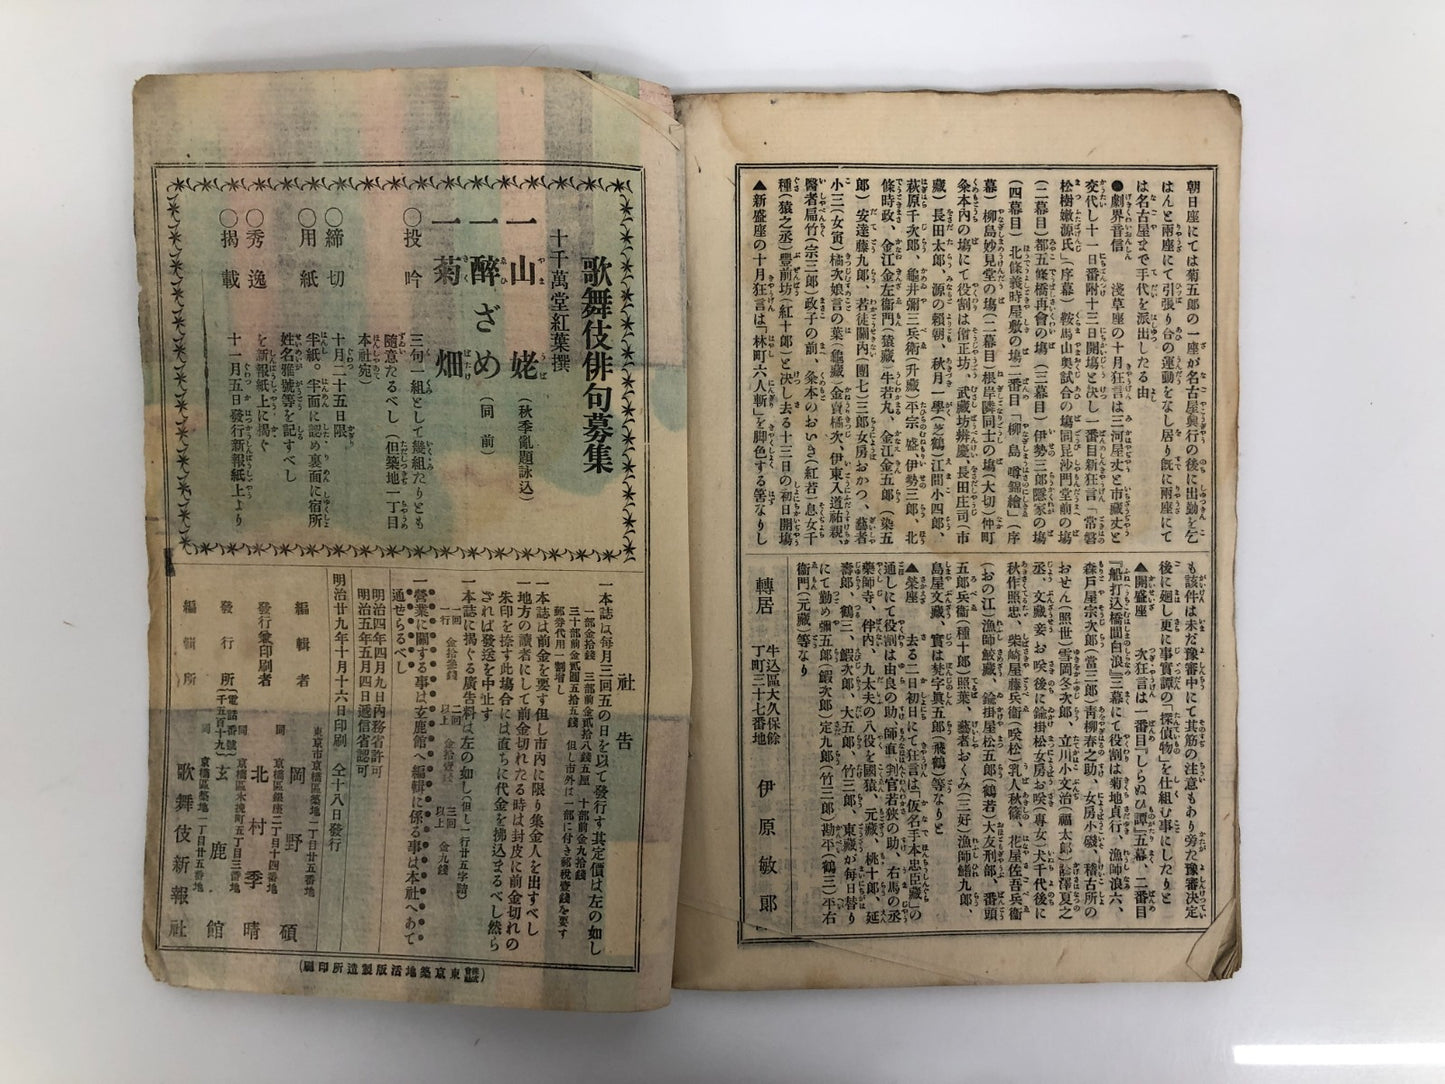 朝日座にては菊五郎の一座が名古屋興行の後に出勤を乞
はんと兩座にて引張り合の運動をなし居り既に兩座にて
は名古屋まで手代を派出したる由
●劇界音信 淺草座の十月狂言は三河屋丈と市藏丈と
交代し十一日番附十三日開塲と決し一番目新狂言「常磐
松樹嫩源氏」(序幕)鞍馬山奧試合の塲同毘沙門堂前の塲
(二幕目)都五條橋再會の塲(三幕目)伊勢三郎隱家の塲
(四幕目)北條義時屋敷の塲二番目「柳島噂錦繪」(序
幕)柳島妙見堂の塲(二幕目)根岸隣同士の塲(大切)仲町
粂本内の塲にて役割は僧正坊、武藏坊辨慶、長田庄司(市
藏)長田太郎、源の賴朝、秋月一學(芝鶴)江間小四郎、
萩原千次郎、龜井彌三兵衛(升藏)平宗盛伊勢三郎、北
條時政、金江金左衛門(猿藏)牛若丸、金江金五郎(染五
郎)安達藤九郎、若徒關内(團七)三郎女房おかつ、藝者
小三(女寅)橘次娘言の葉(龜藏)金賣橘次、伊東入道祐親、
醫者扁竹(宗三郎)政子の前、粂本のおいさ(紅若)息女千
種(猿之丞)豐前坊(紅十郎)と決し去る十三日の初日開塲
▲新盛座の十月狂言は「林町六人斬」を脚色する筈なりし
も該件は未だ豫審中にて其筋の注意もあり旁た豫審决定
後に廻し更に事實譚の「探偵物」を仕組む事にしたりと
▲開盛座 次狂言は一番目『しらぬひ譚』五幕、二番目
『船打込橋間白浪』三幕にて役割は菊地貞行、漁師浪六、
森戸屋宗次郎(當三郎)靑柳春之助、女房小磯、稽古所の
おせん(照世)雪岡冬次郎、立川小文治(福太郎)鮎澤夏之
丞、文藏妾お咲後に鑰掛松女房お咲(專女)犬千代後に
秋作照忠、柴崎屋藤兵衞(咲松)乳人秋篠、花屋佐吾兵衞
(おの江)漁師鮫藏、鑰掛屋松五郎(鶴若)大友刑部、番頭
五郎兵衞(種十郎)照葉、藝者おくみ(三好)漁師鰭九郎、
島屋文藏、實は梵字眞五郎(飛鶴)等なりと
▲榮座 去る二日初日にて狂言は「仮名手本忠臣藏」の
通しにて役割は由良の助、師直、判官若狹の助、右馬の丞
藥師寺、伴内、九太夫の八役を國猿、元藏、桃十郎、延
壽郎、鶴三、鰕次郎、大五郎、竹三郎、東藏が毎日替り
にて勤め彌五郎(鰕次郎)定九郎(竹三郎)勘平(鶴三)平右
衞門(元藏)等なり
轉居 牛込區大久保餘丁町三十七番地 伊原敏郎
歌舞伎俳句募集
十千萬堂紅葉撰
一山姥(秋季亂題詠込)
一醉ざめ(同前)
一菊畑
○投吟 三句一組として幾組たりとも
隨意たるべし(但築地一丁目
本社宛)
○締切 十月二十五日限
○用紙 半紙。半面に認め裏面に宿所
姓名雅號等を記すべし
○秀逸 を新報紙上に揭ぐ
○揭載 十一月五日發行新報紙上より
社告
一本誌は毎月三回五の日を以て發行す其定價は左の如し
一部金拾錢 三部前金貳拾八錢五厘 十部前金九拾錢
三十部前金貳圓五拾五錢 但し市外は一部に付き郵稅壹錢を要す
郵券代用一割增し
一本誌は前金を要す但し市内に限り集金人を出すべし
一地方の讀者にして前金切れたる時は封皮に前金切れの
朱印を捺す此場合には直ちに代金を拂込まるべし然ら
ざれば發送を中止す
一本誌に揭ぐる廣告料は左の如し(但し一行廿五字詰)
一回一行 金拾參錢 二回以上 金拾壹錢 三回以上 金九錢
一營業に關する事は玄鹿館へ編輯に係る事は本社へあて
通せらるべし
明治四年四月九日内務省許可
明治五年五月四日遞信省認可
明治廿九年十月十六日印刷 仝十八日發行
東京市京橋區築地一丁目廿五番地
編輯者 岡野碩
京橋區銀座二丁目十四番地
發行兼印刷者 北村季晴
同京橋區木挽町五丁目三番地
發行所(電話番號千五百十九) 玄鹿館
同京橋區築地一丁目廿五番地
編輯所 歌舞伎新報社
(株式會社東京築地活版製造所印刷)